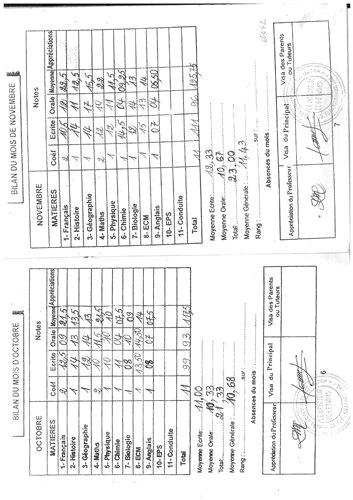 BILAN DU MOIS D'OCTOBRE
OCTOBRE Notes
MATIERES Coéf Ecrite Orale Moyenne Appréciations
1- Français 2 12,5 09 21,5
2- Histoire 1 14 13 13,5
3- Géographie 1 12 14 13
4- Maths 2 10
5- Physique 1 10 10 10
6- Chimie 1 11 04 07,5
7- Biologie 1 08 10 09
8- ECM 1 13,50 14,50 14
9- Anglais 1 08 07 07,5
10- EPS
11- Conduite
Total 11 99 93 117,5
Moyenne Ecrite: 11,00
Moyenne Orale: 10,33
Total: 21,33
Moyenne Générale: 10,68
Rang: sur
Absences du mois
Appréciation du Professeur Visa du Principal Visa des Parents
ou Tuteurs
6
BILAN DU MOIS DE NOVEMBRE
NOVEMBRE Notes
MATIERES Coéf Ecrite Orale Moyenne Appréciations
1- Français 2 10,5 12 22,5
2- Histoire 1 14 11 12,5
3- Géographie 1 14 17 15,5
4- Maths 2 12 10 22
5- Physique 1 12 11 11,5
6- Chimie 1 14,5 04 09,25
7- Biologie 1 12 14 13
8- ECM 1 15 13 14
9- Anglais 1 07 04 05,50
10- EPS
11- Conduite
Total 11 111 96 125,75
Moyenne Ecrite: 12,33
Moyenne Orale: 10,67
Total: 23,00
Moyenne Générale: 11,43
Rang: sur
Absences du mois
Appréciation du Professeur Visa du Principal Visa des Parents
ou Tuteurs
7